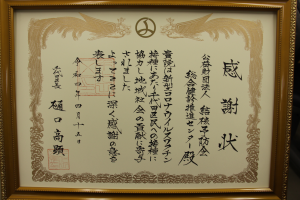 感謝状
公益財団法人 結核予防会
総合健診推進センター 殿
貴殿は新型コロナウイルスワクチン
接種にあたり千代田区民への接種に
協力し地域社会の貢献に寄与
されました
よってここに深く感謝の意を
表します
令和四年四月十五日
千代田区長 樋口高顕